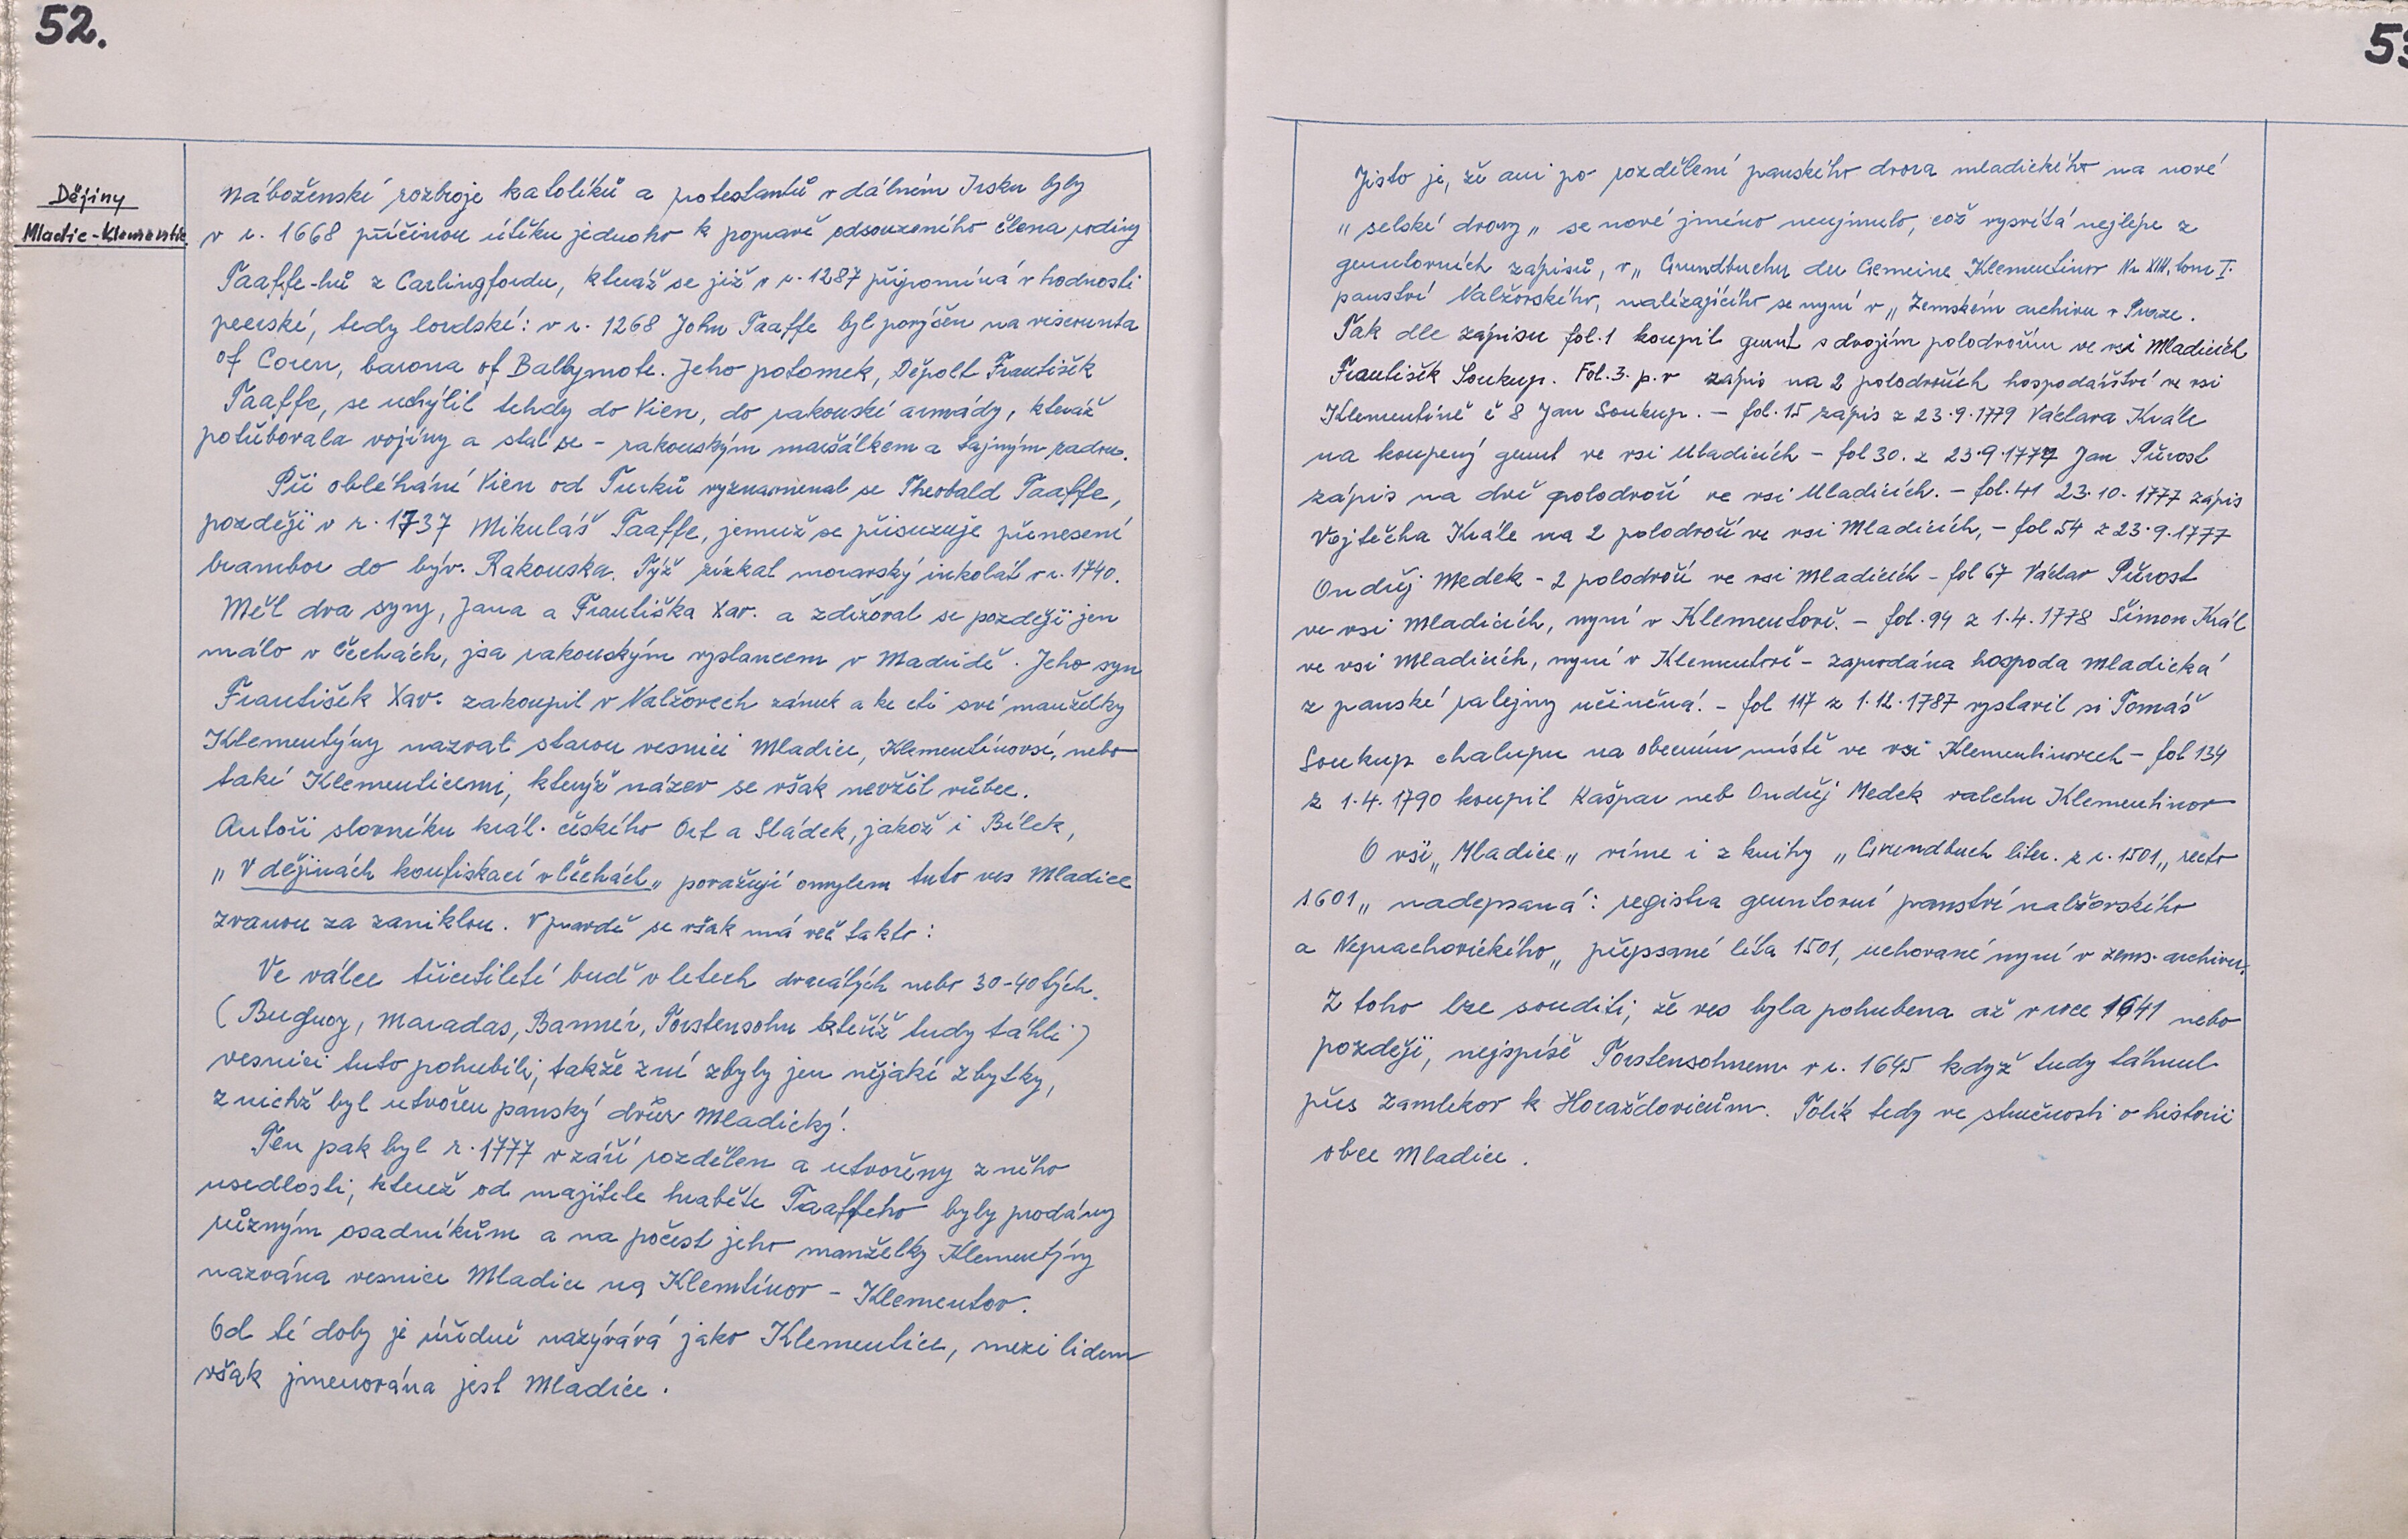 52.
Dějiny
Mladic-Klementic
Náboženské rozbroje katolíků a protestantů v dálném Irsku byly
v r. 1668 příčinou útěku jednoho k popravě odsouzeného člena rodiny
Taaffe-hů z Carlingfordu, kteráž se již v r. 1287 připomíná v hodnosti
peerské, tedy lordské: v r. 1268 John Taaffe byl povýšen na viscounta
of Coren, barona of Ballymote. Jeho potomek, Děpolt František
Taaffe, se uchýlil tehdy do Vien, do rakouské armády, kteráž
potřebovala vojíny a stal se - rakouským maršálkem a tajným radou.
Při obléhání Vien od Turků vyznamenal se Theobald Taaffe,
později v r. 1737 Mikuláš Taaffe, jemuž se přisuzuje přinesení
brambor do býv. Rakouska. Týž získal moravský inkolát v r. 1740.
Měl dva syny, Jana a Františka Xav. a zdržoval se později jen
málo v Čechách, jsa rakouským vyslancem v Madridě. Jeho syn
František Xav. zakoupil v Nalžovech zámek a ke cti své manželky
Klementýny nazval starou vesnici Mladice, Klementínovsí, nebo
také Klementicemi, kterýž název se však nevžil vůbec.
Autoři slovníku král. českého Ort a Sládek, jakož i Bílek,
„V dějinách konfiskací v Čechách„ považují omylem tuto ves Mladice
zvanou za zaniklou. V pravdě se však má věc takto:
Ve válce třicetileté buď v letech dvacátých nebo 30-40tých.
(Buguoy, Maradas, Bannér, Torstensohn kteříž tudy táhli)
vesnici tuto pohubili, takže z ní zbyly jen nějaké zbytky,
z nichž byl utvořen panský dvůr Mladický.
Ten pak byl r. 1777 v září rozdělen a utvořeny z něho
usedlosti, kteréž od majitele hraběte Taaffeho byly prodány
různým osadníkům a na počest jeho manželky Klementýny
nazvána vesnice Mladice na Klemtínov - Klementov.
Od té doby je úředně nazývává jako Klementice, mezi lidem
však jmenována jest Mladice.
Jisto je, že ani po rozdělení panského dvora mladického na nové
„selské dvory„ se nové jméno neujmulo, což vysvítá nejlépe z
gruntovních zápisů, v „Grundbuchu der Gemeine Klementinov Nr XIII, tom I.
panství Nalžovského, nalézajícího se nyní v „Zemském archivu v Praze.
Tak dle zápisu fol. 1 koupil grunt s dvojím polodvořím ve vsi Mladicích
František Soukup. Fol. 3. p. v zápis na 2 polodvořích hospodářství ve vsi
Klementině č 8 Jan Soukup. - fol. 15 zápis z 23.9.1779 Václava Krále
na koupený grunt ve vsi Mladicích - fol 30. z 23.9.1777 Jan Půrost
zápis na dvě polodvoří ve vsi Mladicích. - fol. 41 23.10.1777 zápis
Vojtěcha Krále na 2 polodvoří ve vsi Mladicích, - fol 54 z 23.9.1777
Ondřej Medek - 2 polodvoří ve vsi Mladicích - fol 67 Václav Půrost
ve vsi Mladicích, nyní v Klementově. - fol. 94 z 1.4.1778 Šimon Král
ve vsi Mladicích, nyní v Klementově - zaprodána hospoda mladická
z panské palejny učiněná. - fol 117 z 1.12.1787 vystavil si Tomáš
Soukup chalupu na obecním místě ve vsi Klementinovech - fol 134
z 1.4.1790 koupil Kašpar neb Ondřej Medek valchu Klementinov
O vsi „Mladice„ víme i z knihy „Grundbuch liter. z r. 1501„ recto
1601„ nadepsaná: registra gruntovní panství nalžovského
a Neprachovického„ přepsané léta 1501, uchované nyní v zems. archivu.
Z toho lze souditi, že ves byla pohubena až v roce 1641 nebo
později, nejspíše Torstensohnem v r. 1645 když tudy táhnul
přes Zamlekov k Horažďovicům. Tolik tedy ve stručnosti o historii
obce Mladice.